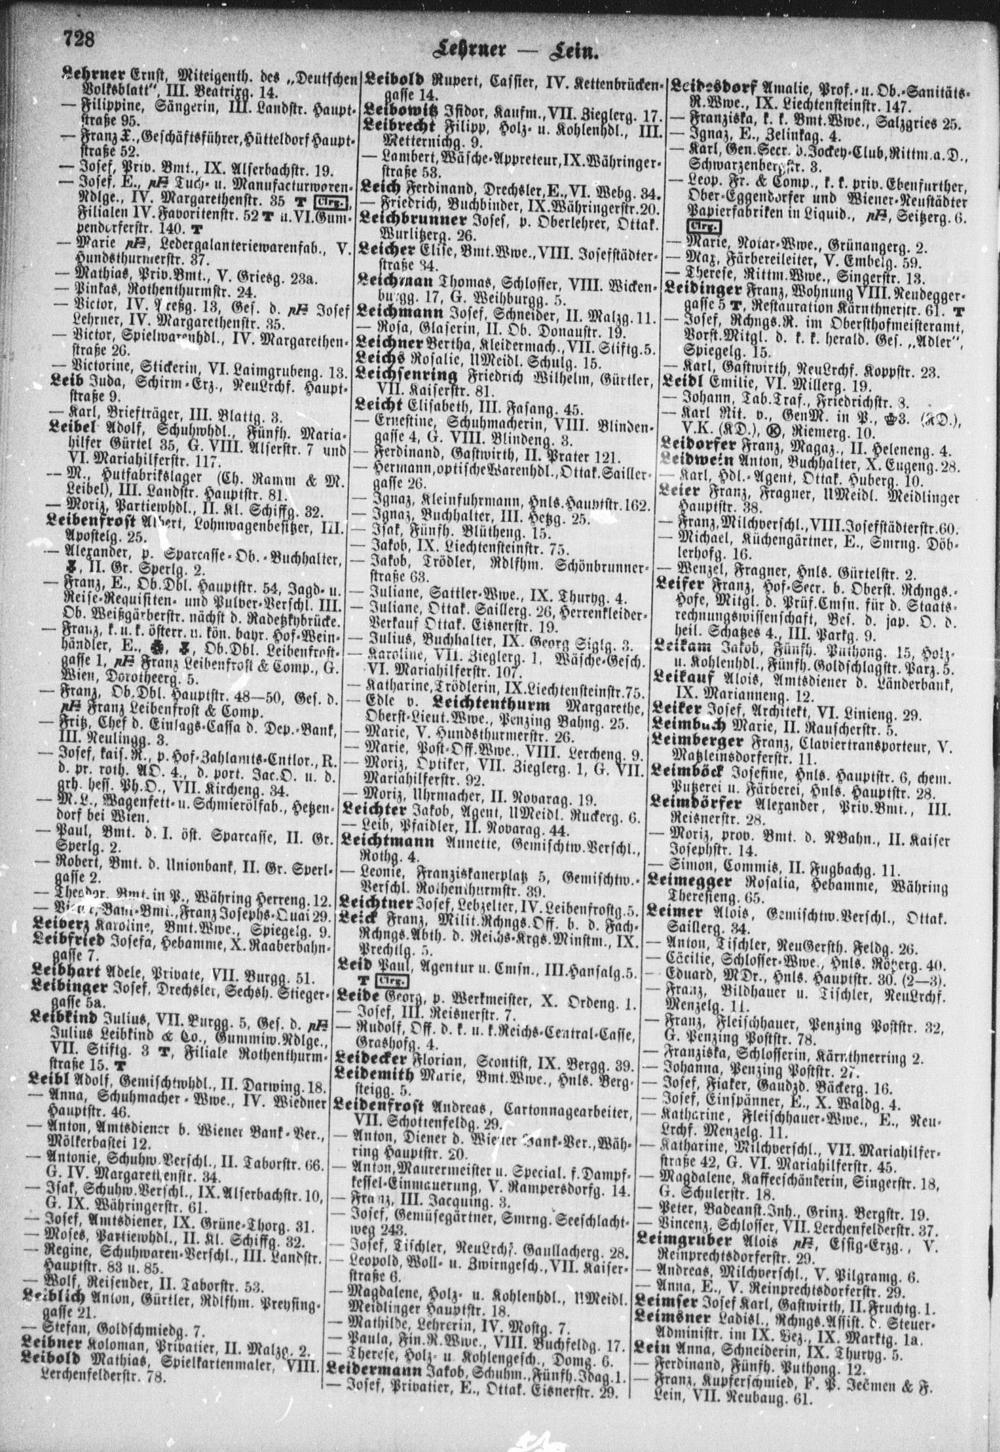 728
Lehrner — Lein.
Lehrner Ernst, Miteigenth. des „Deutschen
Volksblatt", III. Beatrixg. 14.
— Filippine, Sängerin, III. Landstr. Haupt-
straße 95.
— Franz X., Geschäftsführer, Hütteldorf Haupt-
straße 52.
— Josef, Priv. Bmt., IX. Alserbachstr. 19.
— Josef, E., Tuch- u. Manufacturwaren-
Ndlge., IV. Margarethenstr. 35 T Clrg.,
Filialen IV. Favoritenstr. 52 T u. VI. Gum-
pendorferstr. 140. T
— Marie, Ledergalanteriewarenfab., V.
Hundsthurmerstr. 37.
— Mathias, Priv. Bmt., V. Griesg. 23a.
— Pinkas, Rothenthurmstr. 24.
— Victor, IV. Preßg. 13, Ges. d. Josef
Lehrner, IV. Margarethenstr. 35.
— Victor, Spielwarenhdl., IV. Margarethen-
straße 26.
— Victorine, Stickerin, VI. Laimgrubeng. 13.
Leib Juda, Schirm-Erz., NeuLrchf. Haupt-
straße 9.
— Karl, Briefträger, III. Blattg. 3.
Leibel Adolf, Schuhwhdl., Fünfh. Maria-
hilfer Gürtel 35, G. VIII. Alserstr. 7 und
VI. Mariahilferstr. 117.
— M., Hutfabrikslager (Ch. Ramm & M.
Leibel), III. Landstr. Hauptstr. 81.
— Moriz, Partiewhdl., II. Kl. Schiffg. 32.
Leibenfrost Albert, Lohnwagenbesitzer, III.
Apostelg. 25.
— Alexander, p. Sparcasse-Ob.-Buchhalter,
II. Gr. Sperlg. 2.
— Franz, E., Ob.Dbl. Hauptstr. 54, Jagd- u.
Reise-Requisiten- und Pulver-Verschl. III.
Ob. Weißgärberstr. nächst d. Radetzkybrücke.
— Franz, k. u. k. österr. u. kön. bayr. Hof-Wein-
händler, E., Ob.Dbl. Leibenfrost-
gasse 1, Franz Leibenfrost & Comp., G.
Wien, Dorotheerg. 5.
— Franz, Ob.Dbl. Hauptstr. 48—50, Ges. d.
Franz Leibenfrost & Comp.
— Fritz, Chef d. Einlags-Cassa d. Dep.-Bank,
III. Neulingg. 3.
— Josef, kais. R., p. Hof-Zahlamts-Cntlor., R.
d. pr. roth. AO. 4., d. port. Jac.O. u. d.
grh. hess. Ph.O., VII. Kircheng. 34.
— M. L., Wagenfett- u. Schmierölfab., Hetzen-
dorf bei Wien.
— Paul, Bmt. d. I. öst. Sparcasse, II. Gr.
Sperlg. 2.
— Robert, Bmt. d. Unionbank, II. Gr. Sperl-
gasse 2.
— Theodor, Bmt. in P., Währing Herreng. 12.
— Victor, Bank-Bmt., Franz Josephs-Quai 29.
Leiberz Karoline, Bmt. Wwe., Spiegelg. 9.
Leibfried Josefa, Hebamme, X. Raaberbahn-
gasse 7.
Leibhart Adele, Private, VII. Burgg. 51.
Leibinger Josef, Drechsler, Sechsh. Stieger-
gasse 5a.
Leibkind Julius, VII. Burgg. 5, Ges. d.
Julius Leibkind & Co., Gummiw. Ndlge.,
VII. Stiftg. 3 T, Filiale Rothenthurm-
straße 15. T
Leibl Adolf, Gemischtwhdl., II. Darwing. 18.
— Anna, Schuhmacher-Wwe., IV. Wiedner
Hauptstr. 46.
— Anton, Amtsdiener b. Wiener Bank-Ver.,
Mölkerbastei 12.
— Antonie, Schuhw. Verschl., II. Taborstr. 66.
G. IV. Margarethenstr. 34.
— Isak, Schuhw. Verschl., IX. Alserbachstr. 10,
G. IX. Währingerstr. 61.
— Josef, Amtsdiener, IX. Grüne-Thorg. 31.
— Moses, Partiewhdl., II. Kl. Schiffg. 32.
— Regine, Schuhwaren-Verschl., III. Landstr.
Hauptstr. 83 u. 85.
— Wolf, Reisender, II. Taborstr. 53.
Leiblich Anton, Gürtler, Rdlfhm. Preysing-
gasse 21.
— Stefan, Goldschmiedg. 7.
Leibner Koloman, Privatier, II. Malzg. 2.
Leibold Mathias, Spielkartenmaler, VIII.
Lerchenfelderstr. 78.
Leibold Rupert, Cassier, IV. Kettenbrücken-
gasse 14.
Leibowitz Isidor, Kaufm., VII. Zieglerg. 17.
Leibrecht Filipp, Holz- u. Kohlenhdl., III.
Metternichg. 9.
— Lambert, Wäsche-Appreteur, IX. Währinger-
straße 53.
Leich Ferdinand, Drechsler, E., VI. Webg. 34.
— Friedrich, Buchbinder, IX. Währingerstr. 20.
Leichbrunner Josef, p. Oberlehrer, Ottak.
Wurlitzerg. 26.
Leicher Elise, Bmt. Wwe., VIII. Josefstädter-
straße 34.
Leichman Thomas, Schlosser, VIII. Wicken-
burgg. 17, G. Weihburgg. 5.
Leichmann Josef, Schneider, II. Malzg. 11.
— Rosa, Glaserin, II. Ob. Donaustr. 19.
Leichner Bertha, Kleidermach., VII. Stiftg. 5.
Leichs Rosalie, UMeidl. Schulg. 15.
Leichsenring Friedrich Wilhelm, Gürtler,
VII. Kaiserstr. 81.
Leicht Elisabeth, III. Fasang. 45.
— Ernestine, Schuhmacherin, VIII. Blinden-
gasse 4, G. VIII. Blindeng. 3.
— Ferdinand, Gastwirth, II. Prater 121.
— Hermann, optische Warenhdl., Ottak. Sailler-
gasse 26.
— Ignaz, Kleinfuhrmann, Hnls. Hauptstr. 162.
— Ignaz, Buchhalter, III. Hetzg. 25.
— Isak, Fünfh. Blütheng. 15.
— Jakob, IX. Liechtensteinstr. 75.
— Jakob, Trödler, Rdlfhm. Schönbrunner-
straße 63.
— Juliane, Sattler-Wwe., IX. Thuryg. 4.
— Juliane, Ottak. Saillerg. 26, Herrenkleider-
Verkauf Ottak. Eisnerstr. 19.
— Julius, Buchhalter, IX. Georg Siglg. 3.
— Karoline, VII. Zieglerg. 1, Wäsche-Gesch.
VI. Mariahilferstr. 107.
— Katharine, Trödlerin, IX. Liechtensteinstr. 75.
— Edle v. Leichtenthurm Margarethe,
Oberst-Lieut. Wwe., Penzing Bahng. 25.
— Marie, V. Hundsthurmerstr. 26.
— Marie, Post-Off. Wwe., VIII. Lercheng. 9.
— Moriz, Optiker, VII. Zieglerg. 1, G. VII.
Mariahilferstr. 92.
— Moriz, Uhrmacher, II. Novarag. 19.
Leichter Jakob, Agent, UMeidl. Ruckerg. 6.
— Leib, Pfaidler, II. Novarag. 44.
Leichtmann Annette, Gemischtw. Verschl.,
Rothg. 4.
— Leonie, Franziskanerplatz 5, Gemischtw.-
Verschl. Rothenthurmstr. 39.
Leichtner Josef, Lebzelter, IV. Leibenfrostg. 5.
Leick Franz, Milit. Rchngs. Off. b. d. Fach-
Rchngs. Abth. d. Reichs-Krgs. Minstm., IX.
Prechtlg. 5.
Leid Paul, Agentur u. Cmsn., III. Hansalg. 5.
T Clrg.
Leide Georg, p. Werkmeister, X. Ordeng. 1.
— Josef, III. Reisnerstr. 7.
— Rudolf, Off. d. k. u. k. Reichs-Central-Casse,
Grashofg. 4.
Leidecker Florian, Scontist, IX. Bergg. 39.
Leidemith Marie, Bmt. Wwe., Hnls. Berg-
steigg. 5.
Leidenfrost Andreas, Cartonnagearbeiter,
VII. Schottenfeldg. 29.
— Anton, Diener d. Wiener Bank-Ver., Wäh-
ring Hauptstr. 20.
— Anton, Maurermeister u. Special. f. Dampf-
kessel-Einmauerung, V. Rampersdorfg. 14.
— Franz, III. Jacquing. 3.
— Josef, Gemüsegärtner, Smrng. Seeschlacht-
weg 243.
— Josef, Tischler, NeuLrchf. Gaullacherg. 28.
— Leopold, Woll- u. Zwirngesch., VII. Kaiser-
straße 6.
— Magdalene, Holz- u. Kohlenhdl., UMeidl.
Meidlinger Hauptstr. 18.
— Mathilde, Lehrerin, IV. Mostg. 7.
— Paula, Fin. R. Wwe., VIII. Buchfeldg. 17.
— Therese, Holz- u. Kohlengesch., Domg. 6.
Leidermann Jakob, Schuhm., Fünfh. Idag. 1.
— Josef, Privatier, E., Ottak. Eisnerstr. 29.
Leidesdorf Amalie, Prof.- u. Ob.-Sanitäts-
R. Wwe., IX. Liechtensteinstr. 147.
— Franziska, k. k. Bmt. Wwe., Salzgries 25.
— Ignaz, E., Zelinkag. 4.
— Karl, Gen. Secr. d. Jockey-Club, Rittm. a. D.,
Schwarzenbergstr. 3.
— Leop. Fr. & Comp., k. k. priv. Ebenfurther,
Ober-Eggendorfer und Wiener-Neustädter
Papierfabriken in Liquid., Seitzerg. 6.
Clrg.
— Marie, Notar-Wwe., Grünangerg. 2.
— Max, Färbereileiter, V. Embelg. 59.
— Therese, Rittm. Wwe., Singerstr. 13.
Leidinger Franz, Wohnung VIII. Neudegger-
gasse 5 T, Restauration Kärnthnerstr. 61. T
— Josef, Rchngs. R. im Obersthofmeisteramt,
Vorst. Mitgl. d. k. k. herald. Ges. „Adler",
Spiegelg. 15.
— Karl, Gastwirth, NeuLrchf. Koppstr. 23.
Leidl Emilie, VI. Millerg. 19.
— Johann, Tab. Traf., Friedrichstr. 3.
— Karl Rit. v., GenM. in P., 3. (KD.),
V.K. (KD.), Riemerg. 10.
Leidorfer Franz, Magaz., II. Heleneng. 4.
Leidwein Anton, Buchhalter, X. Eugeng. 28.
— Karl, Hdl.-Agent, Ottak. Huberg. 10.
Leier Franz, Fragner, UMeidl. Meidlinger
Hauptstr. 38.
— Franz, Milchverschl., VIII. Josefstädterstr. 60.
— Michael, Küchengärtner, E., Smrng. Döb-
lerhofg. 16.
— Wenzel, Fragner, Hnls. Gürtelstr. 2.
Leifer Franz, Hof-Secr. b. Oberst. Rchngs.-
Hofe, Mitgl. d. Prüf. Cmsn. für d. Staats-
rechnungswissenschaft, Bes. d. jap. O. d.
heil. Schatzes 4., III. Parkg. 9.
Leikam Jakob, Fünfh. Puthong. 15, Holz-
u. Kohlenhdl., Fünfh. Goldschlagstr. Parz. 5.
Leikauf Alois, Amtsdiener d. Länderbank,
IX. Marianneng. 12.
Leiker Josef, Architekt, VI. Linieng. 29.
Leimbuch Marie, II. Rauscherstr. 5.
Leimberger Franz, Claviertransporteur, V.
Matzleinsdorferstr. 11.
Leimböck Josefine, Hnls. Hauptstr. 6, chem.
Putzerei u. Färberei, Hnls. Hauptstr. 28.
Leimdörfer Alexander, Priv. Bmt., III.
Reisnerstr. 28.
— Moriz, prov. Bmt. d. NBahn., II. Kaiser
Josephstr. 14.
— Simon, Commis, II. Fugbachg. 11.
Leimegger Rosalia, Hebamme, Währing
Theresieng. 65.
Leimer Alois, Gemischtw. Verschl., Ottak.
Saillerg. 34.
— Anton, Tischler, NeuGersth. Feldg. 26.
— Cäcilie, Schlosser-Wwe., Hnls. Rötzerg. 40.
— Eduard, MDr., Hnls. Hauptstr. 30. (2—3).
— Franz, Bildhauer u. Tischler, NeuLrchf.
Menzelg. 11.
— Franz, Fleischhauer, Penzing Poststr. 32,
G. Penzing Poststr. 78.
— Franziska, Schlosserin, Kärnthnerring 2.
— Johanna, Penzing Poststr. 27.
— Josef, Fiaker, Gaudzd. Bäckerg. 16.
— Josef, Einspänner, E., X. Waldg. 4.
— Katharine, Fleischhauer-Wwe., E., Neu-
Lrchf. Menzelg. 11.
— Katharine, Milchverschl., VII. Mariahilfer-
straße 42, G. VI. Mariahilferstr. 45.
— Magdalene, Kaffeeschänkerin, Singerstr. 18,
G. Schulerstr. 18.
— Peter, Badeanst. Inh., Grinz. Bergstr. 19.
— Vincenz, Schlosser, VII. Lerchenfelderstr. 37.
Leimgruber Alois, Essig-Erzg., V.
Reinprechtsdorferstr. 29.
— Andreas, Milchverschl., V. Pilgramg. 6.
— Anna, E., V. Reinprechtsdorferstr. 29.
Leimser Josef Karl, Gastwirth, II. Fruchtg. 1.
Leimsner Ladisl., Rchngs. Assist. d. Steuer-
Administr. im IX. Bez., IX. Marktg. 1a.
Lein Anna, Schneiderin, IX. Thuryg. 5.
— Ferdinand, Fünfh. Puthong. 12.
— Franz, Kupferschmied, F. P. Ječmen & F.
Lein, VII. Neubaug. 61.